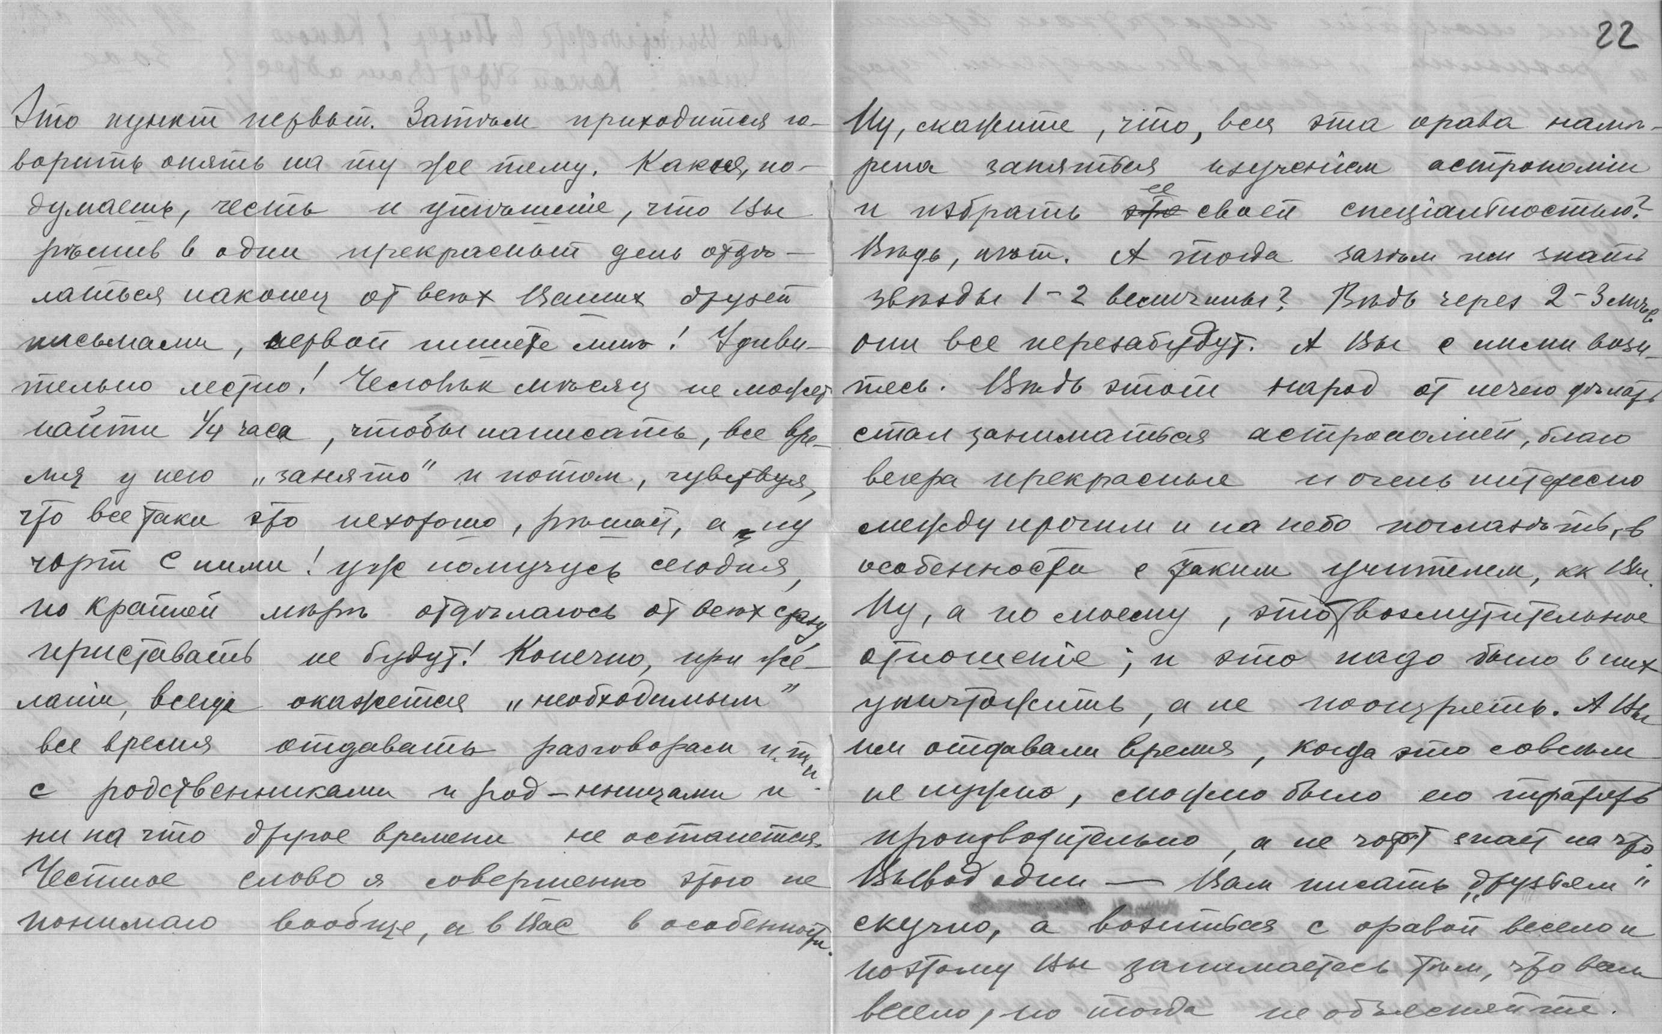 Это пункт первый. Затѣм приходится го-
ворить опять на ту же тему. Какая, по-
думаешь, честь и утѣшенiе, что Вы
рѣшив в один прекрасный день отдѣ-
латься наконец от всѣх Ваших друзей
письмами, первой пишете мнѣ! Удиви-
тельно лестно! Человѣк мѣсяц не может
найти 1/4 часа, чтобы написать, все вре-
мя у него „занято" и потом, чувствуя,
что все таки это нехорошо, рѣшает, а ну
чорт с ними! уж помучусь сегодня,
по крайней мѣрѣ отдѣлаюсь от всѣх сразу
приставать не будут! Конечно, при же-
лании, всегда окажется „необходимым"
все время отдавать разговорам и т. п.
с родственниками и род-нницами и
ни на что другое времени не останется.
Честное слово я совершенно этого не
понимаю вообще, а в Вас в особенности.
22
Ну, скажите, что, вся эта орава намѣ-
рена заняться изученiем астрономiи
и избрать это ее своей спецiальностью?
Вѣдь, нѣт. А тогда зачѣм им знать
звѣзды 1-2 величины? Вѣдь через 2-3 мѣс.
они все перезабудут. А Вы с ними вози-
тесь. Вѣдь этот народ от нечего дѣлать
стал заниматься астрономiей, благо
вечера прекрасные и очень интересно
между прочим и на небо поглазѣть, в
особенности с таким учителем, кк Вы.
Ну, а по моему, это возмутительное
отношенiе; и это надо было в них
уничтожить, а не поощрять. А Вы
им отдавали время, когда это совсѣм
не нужно, можно было его тратить
производительно, а не чорт знает на что
Вывод один — Вам писать „друзьям"
скучно, а возиться с оравой весело и
поэтому Вы занимаетесь тѣм, что вам
весело, но тогда не объясняйте.